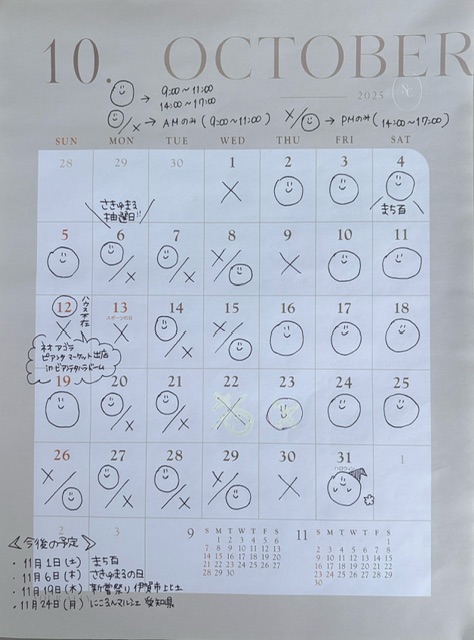 10. OCTOBER
2025
→ 9:00～11:00
14:00～17:00
/× → AMのみ (9:00～11:00)
×/ → PMのみ (14:00～17:00)
SUN MON TUE WED THU FRI SAT
28 29 30 1 2 3 4
×
まち百
さきゅまる
抽選日!!
5 6 7 8 9 10 11
/× /× ×/ ×
12 13 14 15 16 17 18
ハウス不在
スポーツの日
× × /× ×/
ネオアゴラ
ピアンタマーケット出店
in
19 20 21 22 23 24 25
/× /× ×
26 27 28 29 30 31 1
×/ /× /× ×/ ×
ハロウィン
2 3
＜今後の予定＞
・11月1日(土) まち百
・11月6日(木) さきゅまるの日
・11月19日(木) 新嘗祭り 伊賀市
・11月24日(月) にころんマルシェ 愛知県
9
S M T W T F S
1 2 3 4 5 6
7 8 9 10 11 12 13
14 15 16 17 18 19 20
21 22 23 24 25 26 27
28 29 30
11
S M T W T F S
1
2 3 4 5 6 7 8
9 10 11 12 13 14 15
16 17 18 19 20 21 22
23 24 25 26 27 28 29
30